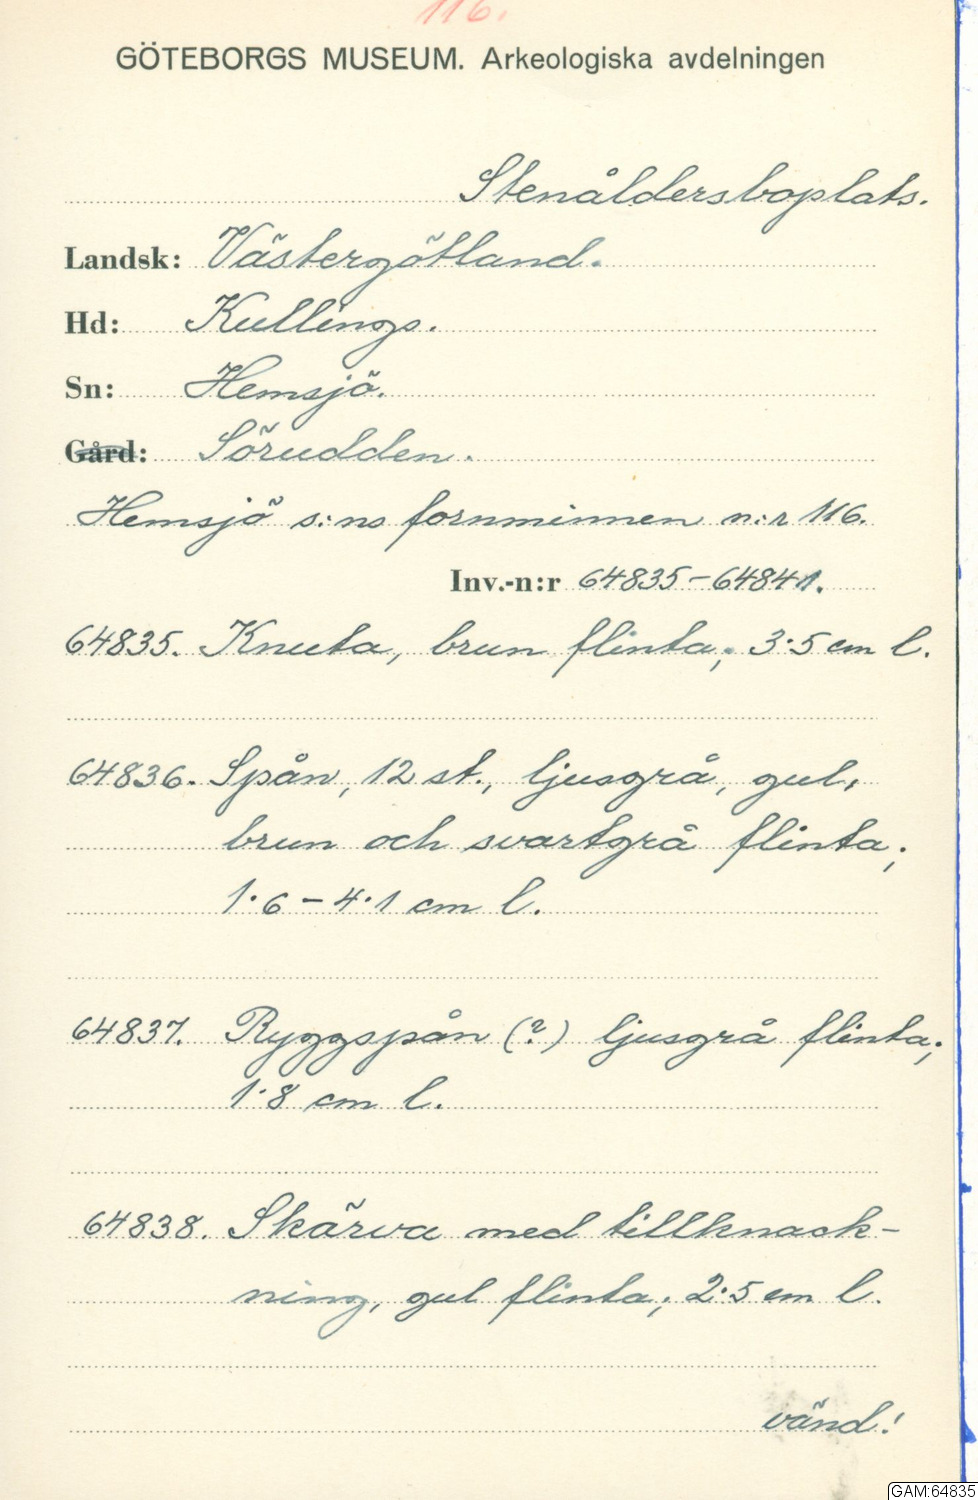 116.
GÖTEBORGS MUSEUM. Arkeologiska avdelningen
Stenåldersboplats.
Landsk: Västergötland.
Hd: Kullings.
Sn: Hemsjö.
Gård: Sörudden.
Hemsjö s:ns fornminnen n:r 116.
Inv.-n:r 64835-64841.
64835. Knuta, brun flinta; 3·5 cm l.
64836. Spån, 12 st., ljusgrå, gul,
brun och svartgrå flinta;
1·6-4·1 cm l.
64837. Ryggspån (?) ljusgrå flinta;
1·8 cm l.
64838. Skärva med tillknack-
ning, gul flinta; 2·5 cm l.
vänd!
GAM:64835